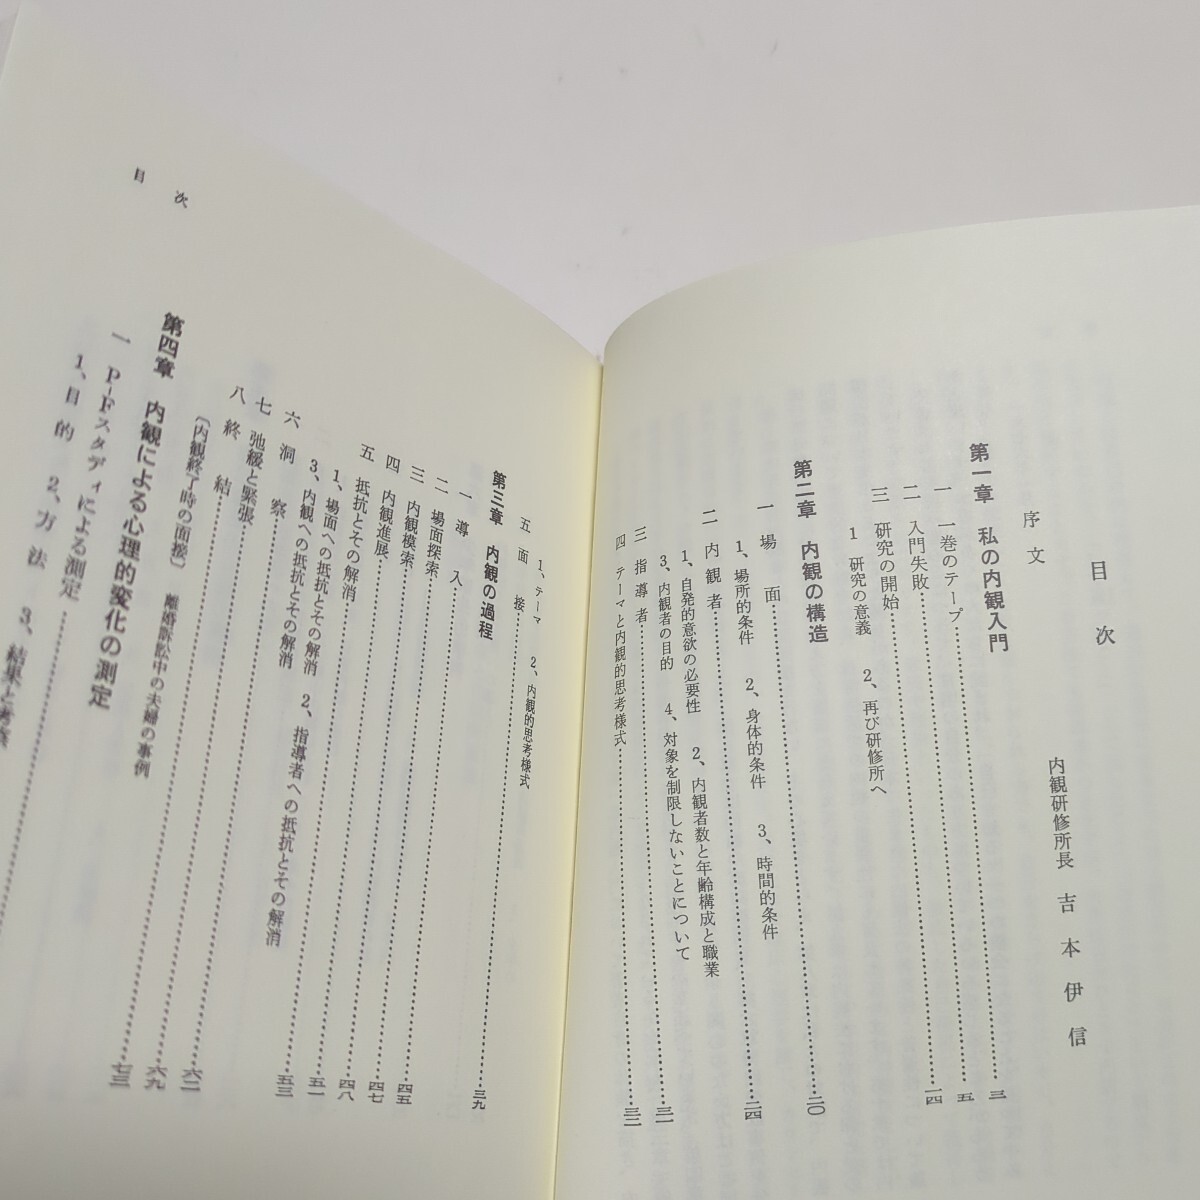 目次
序文 内観研修所長 吉本伊信
第一章 私の内観入門
一 一巻のテープ……三
二 入門失敗……五
三 研究の開始……一四
1 研究の意義 2、再び研修所へ
第二章 内観の構造
一 場面……二〇
1、場所的条件 2、身体的条件 3、時間的条件
二 内観者……二四
1、自発的意欲の必要性 2、内観者数と年齢構成と職業
3、内観者の目的 4、対象を制限しないことについて
三 指導者……三一
四 テーマと内観的思考様式……三二
目次
1、テーマ 2、内観的思考様式
五 面接……三九
第三章 内観の過程
一 導入……四五
二 場面探索……四七
三 内観模索……四八
四 内観進展……五一
五 抵抗とその解消……五三
1、場面への抵抗とその解消 2、指導者への抵抗とその解消
3、内観への抵抗とその解消
六 洞察……六二
七 弛緩と緊張……六九
八 終結……七三
〔内観終了時の面接〕 離婚訴訟中の夫婦の事例
第四章 内観による心理的変化の測定
一 P-Fスタディによる測定……
1、目的 2、方法 3、結果と考察